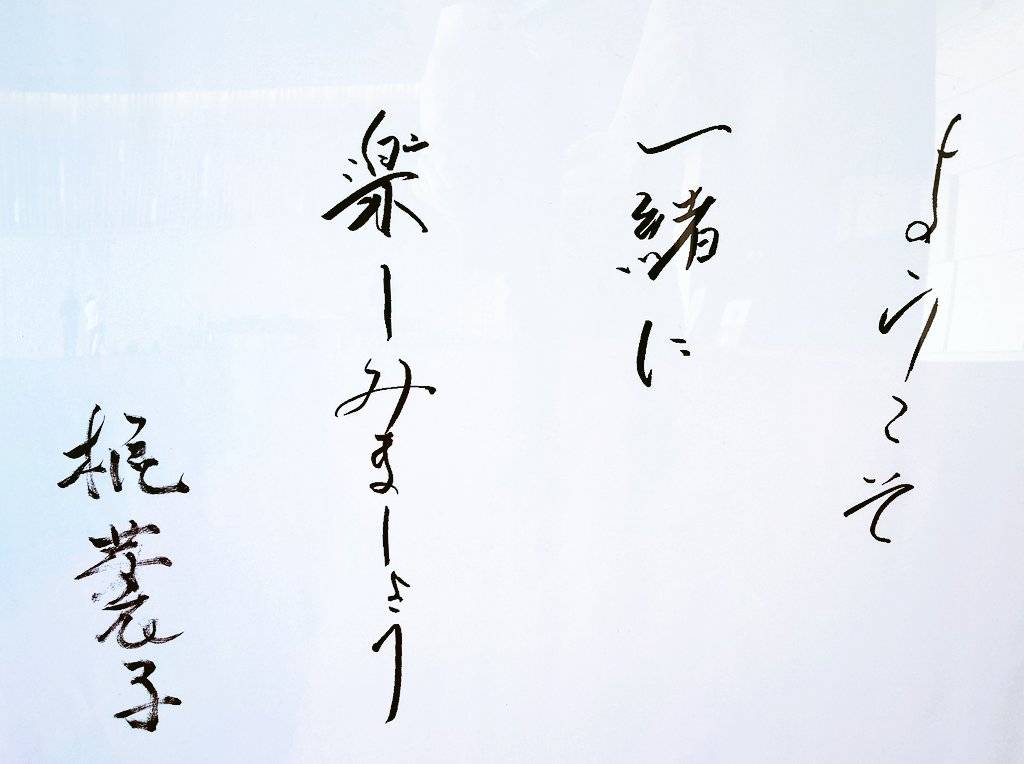 ようこそ
一緒に
楽しみましょう
梶芽衣子